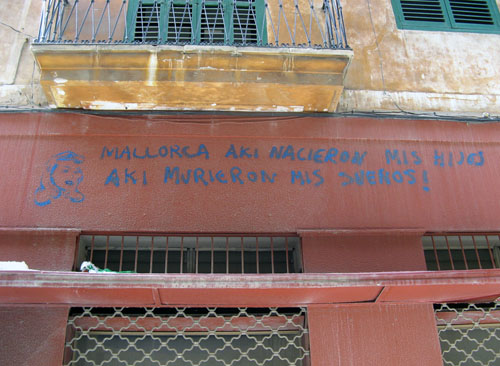 MALLORCA AKI NACIERON MIS HIJOS
AKI MURIERON MIS SUEÑOS!